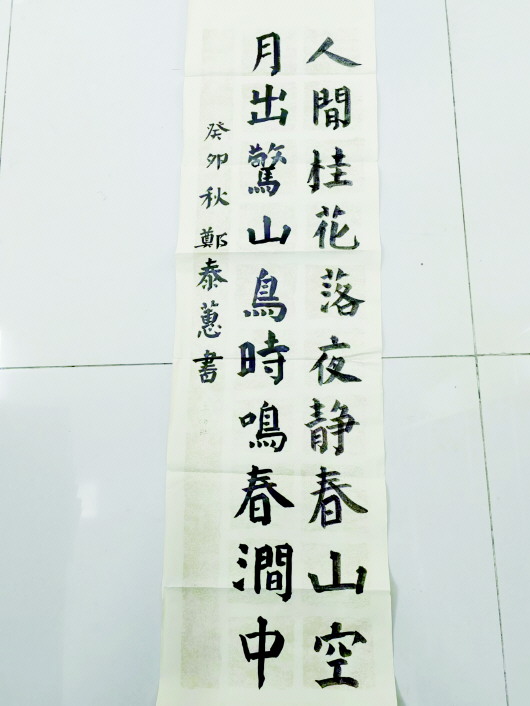 人間桂花落夜静春山空
月出驚山鳥時鳴春澗中
癸卯秋鄭泰蕙書